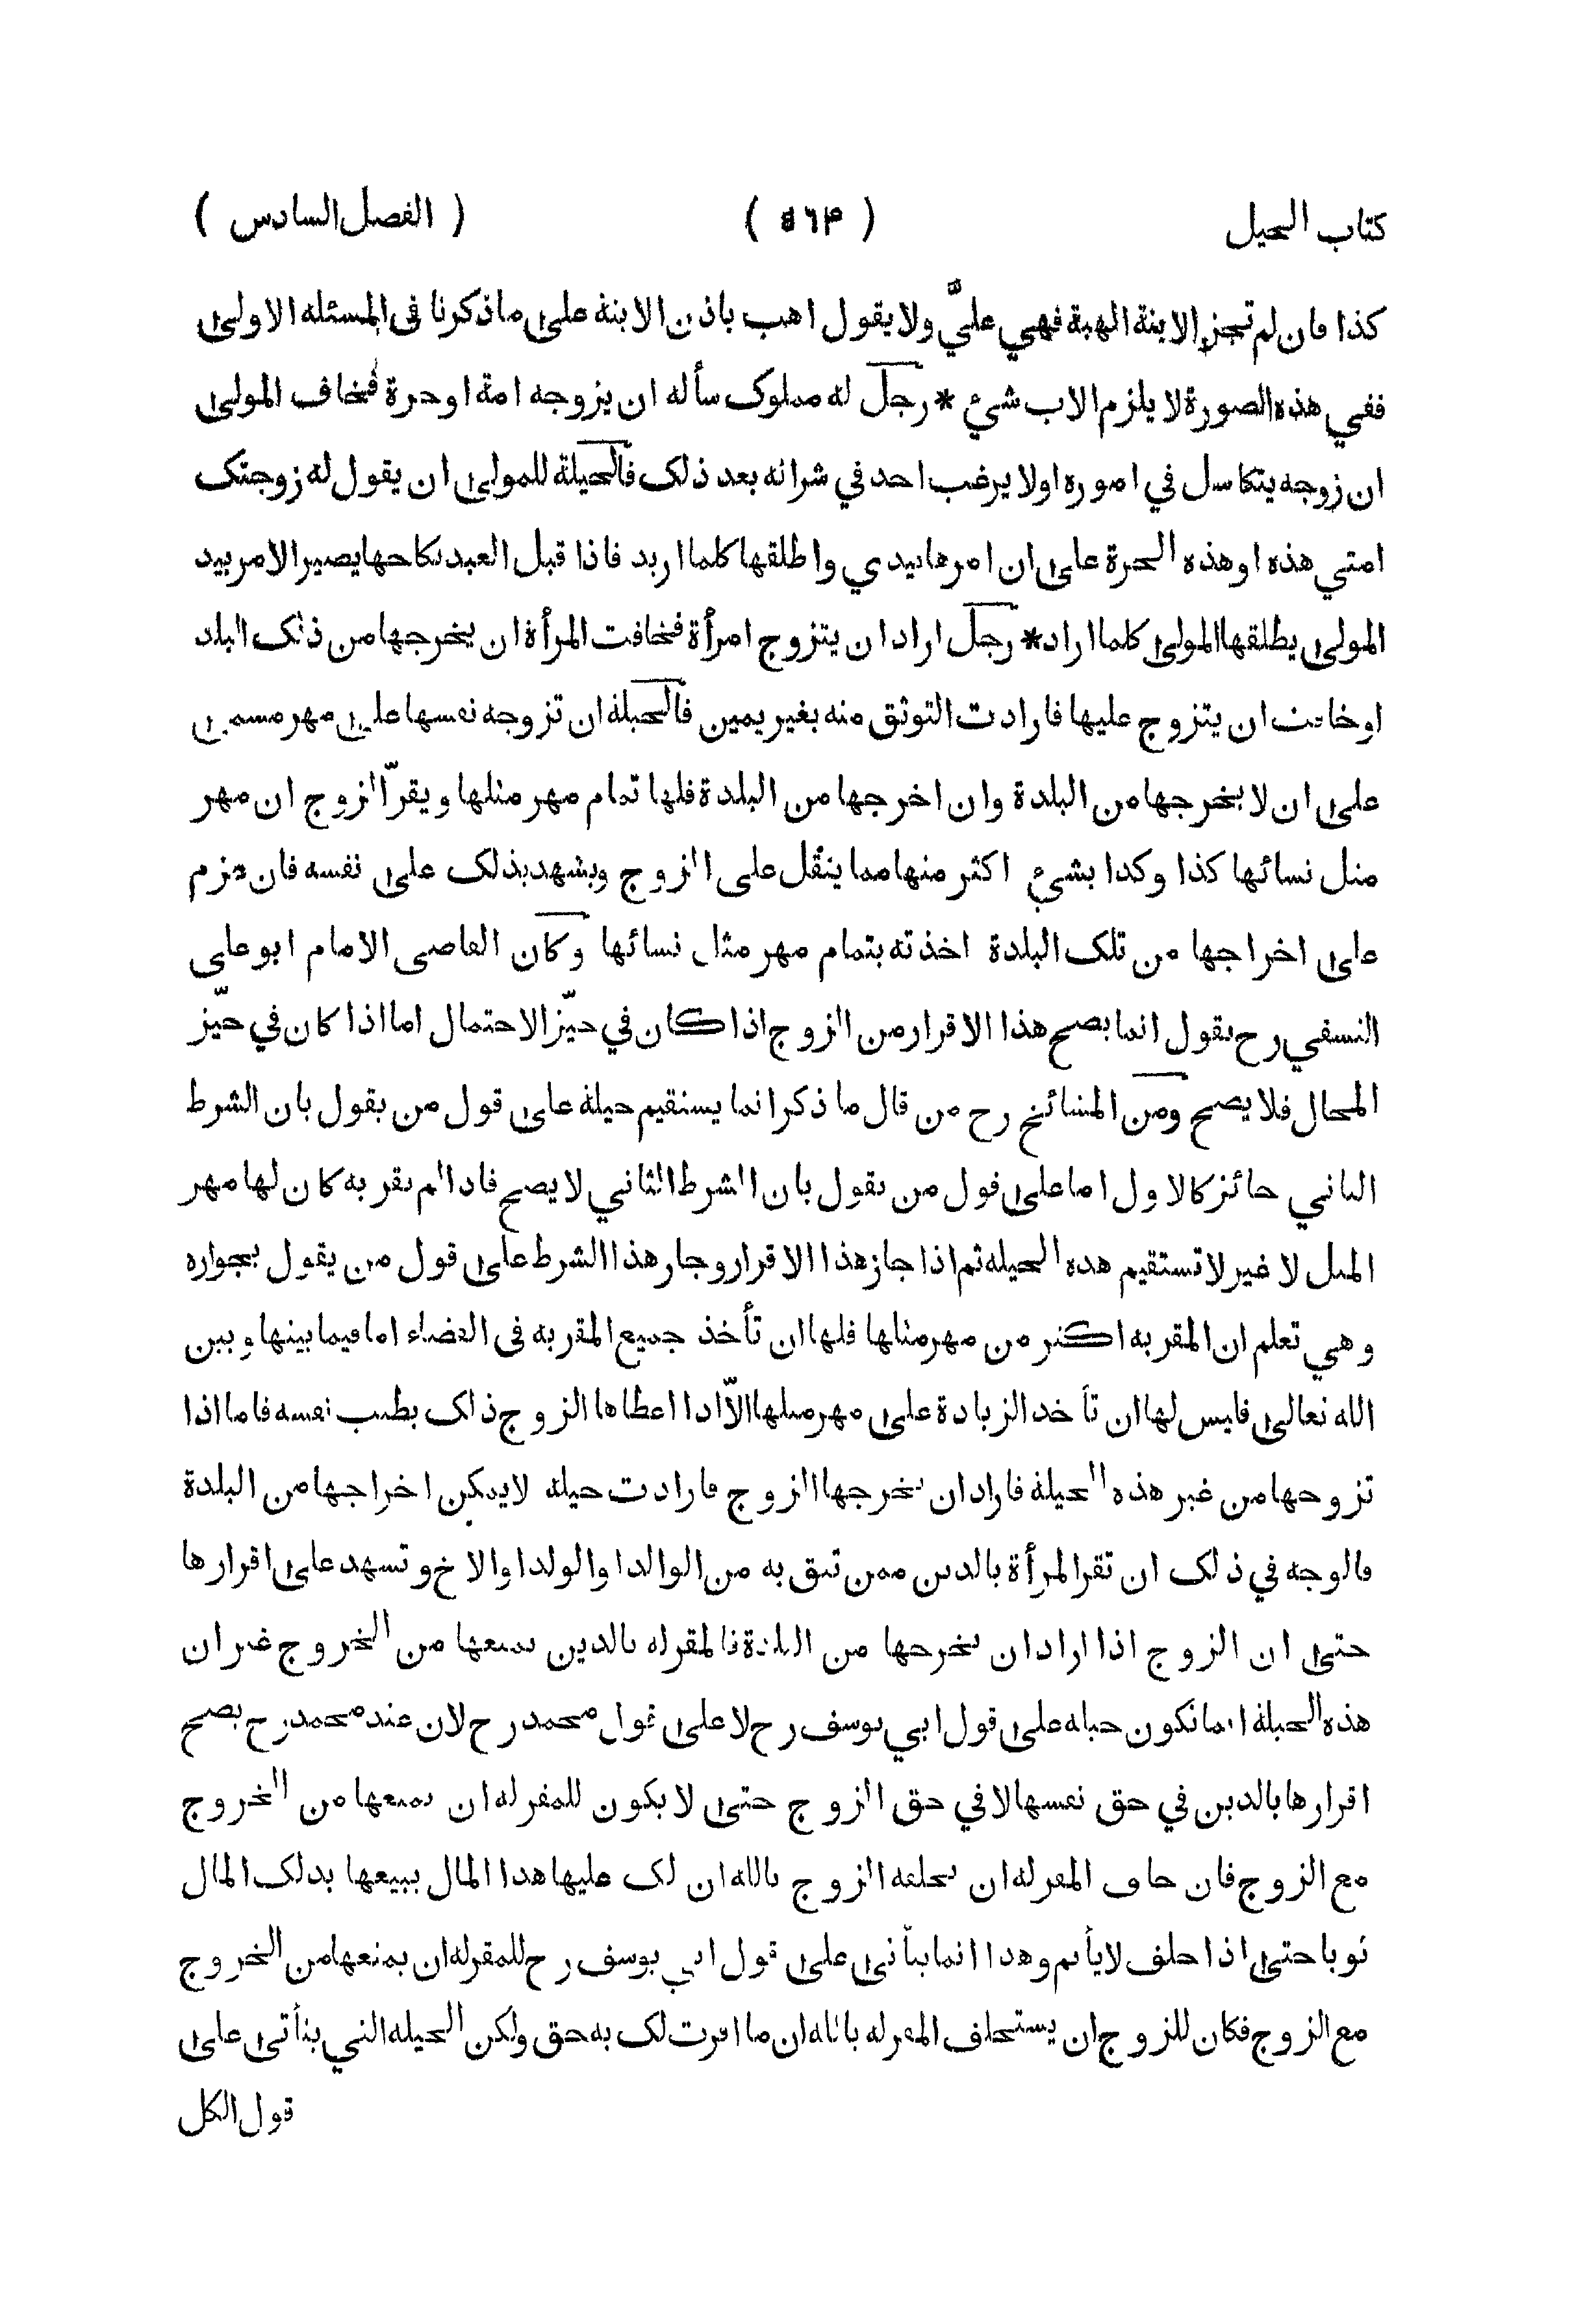 كتاب الحيل ( ٥٦٤ ) ( الفصل السادس )
كذا فان لم تجز الابنة الهبة فهي عليَّ ولا يقول اهب باذن الابنة على ما ذكرنا فى المسئلة الاولى
ففي هذه الصورة لا يلزم الاب شيء * رجل له مملوك سأله ان يزوجه امة او حرة فخاف المولى
ان زوجه يتكاسل في اموره او لا يرغب احد في شرائه بعد ذلك فالحيلة للمولى ان يقول له زوجتك
امتي هذه او هذه الحرة على ان امرها بيدي واطلقها كلما اريد فاذا قبل العبد نكاحها يصير الامر بيد
المولى يطلقها المولى كلما اراد * رجل اراد ان يتزوج امرأة فخافت المرأة ان يخرجها من ذلك البلد
او خافت ان يتزوج عليها فارادت التوثق منه بغير يمين فالحيلة ان تزوجه نفسها على مهر مسمى
على ان لا يخرجها من البلدة وان اخرجها من البلدة فلها تمام مهر مثلها ويقرّ الزوج ان مهر
مثل نسائها كذا وكذا بشيء اكثر منها مما يثقل على الزوج ويشهد بذلك على نفسه فان عزم
على اخراجها من تلك البلدة اخذته بتمام مهر مثل نسائها وكان القاضى الامام ابو على
النسفي رح يقول انما يصح هذا الاقرار من الزوج اذا كان في حيّز الاحتمال اما اذا كان في حيّز
المحال فلا يصح ومن المشائخ رح من قال ما ذكر انما يستقيم حيلة على قول من يقول بان الشرط
الثاني جائز كالاول اما على قول من يقول بان الشرط الثاني لا يصح فاذا لم يقر به كان لها مهر
المثل لا غير لا تستقيم هذه الحيلة ثم اذا جاز هذا الاقرار وجاز هذا الشرط على قول من يقول بجوازه
وهي تعلم ان المقر به اكثر من مهر مثلها فلها ان تأخذ جميع المقر به فى القضاء اما فيما بينها وبين
الله تعالى فليس لها ان تأخذ الزيادة على مهر مثلها الاّ اذا اعطاها الزوج ذلك بطيب نفسه فاما اذا
تزوجها من غير هذه الحيلة فاراد ان يخرجها الزوج فارادت حيلة لا يمكن اخراجها من البلدة
فالوجه في ذلك ان تقر المرأة بالدين ممن تثق به من الوالد او الولد او الاخ وتشهد على اقرارها
حتى ان الزوج اذا اراد ان يخرجها من البلدة فالمقر له بالدين يمنعها من الخروج غير ان
هذه الحيلة انما تكون حيلة على قول ابي يوسف رح لا على قول محمد رح لان عند محمد رح يصح
اقرارها بالدين في حق نفسها لا في حق الزوج حتى لا يكون للمقر له ان يمنعها من الخروج
مع الزوج فان خاف المقر له ان يحلفه الزوج بالله ان لك عليها هذا المال يبيعها بذلك المال
ثوبا حتى اذا حلف لا يأثم وهذا انما يتأتى على قول ابي يوسف رح للمقر له ان يمنعها من الخروج
مع الزوج فكان للزوج ان يستحلف المقر له بالله ان ما اقرت لك به حق ولكن الحيلة التي يتأتى على
قول الكل